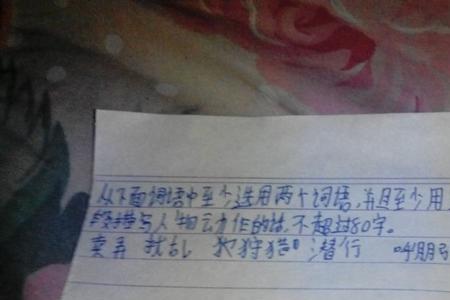 从下面词语中至少选用两个词语,并且至少用
段描写人物动作的话,不超过80字。
卖弄 扰乱 狩猎 潜行 呼朋